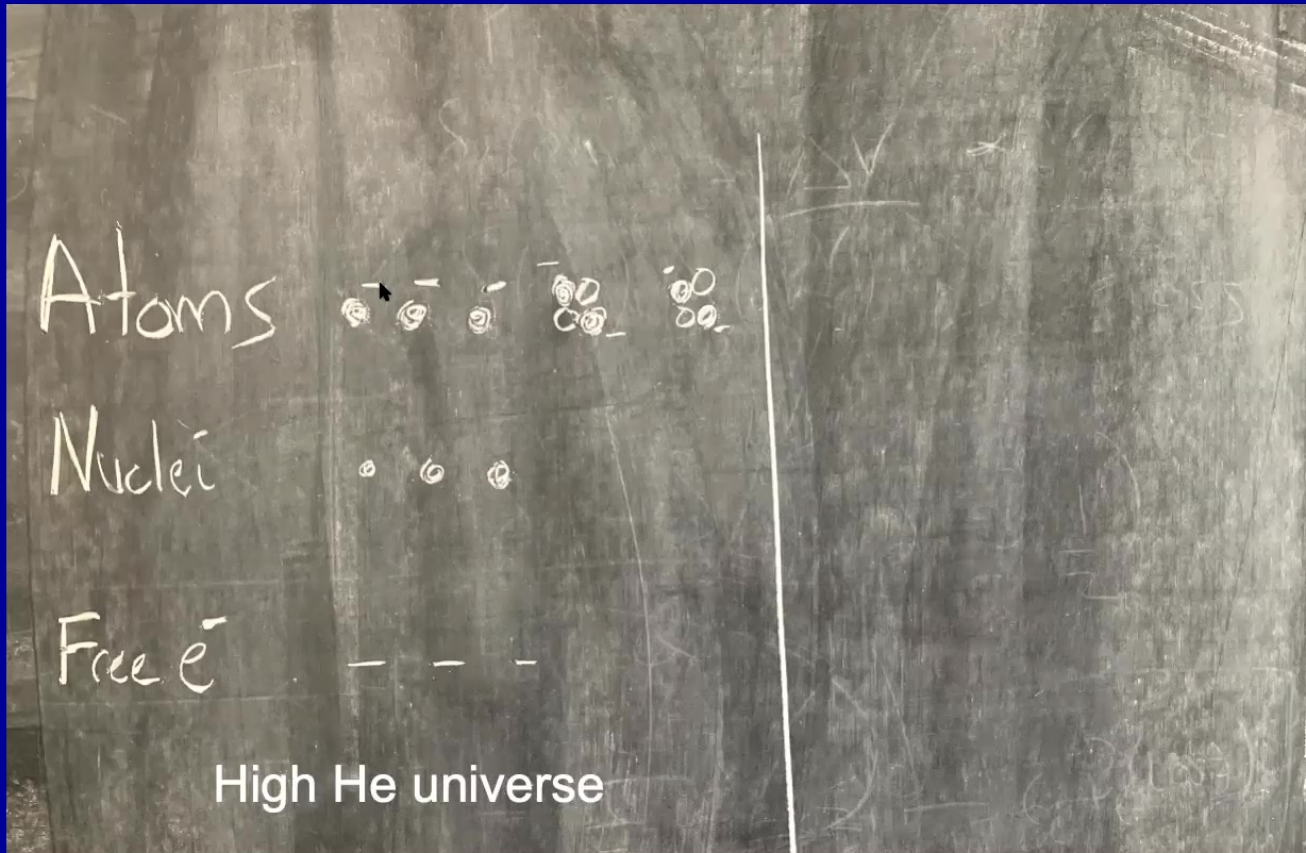 Atoms
Nuclei
Free e-
High He universe